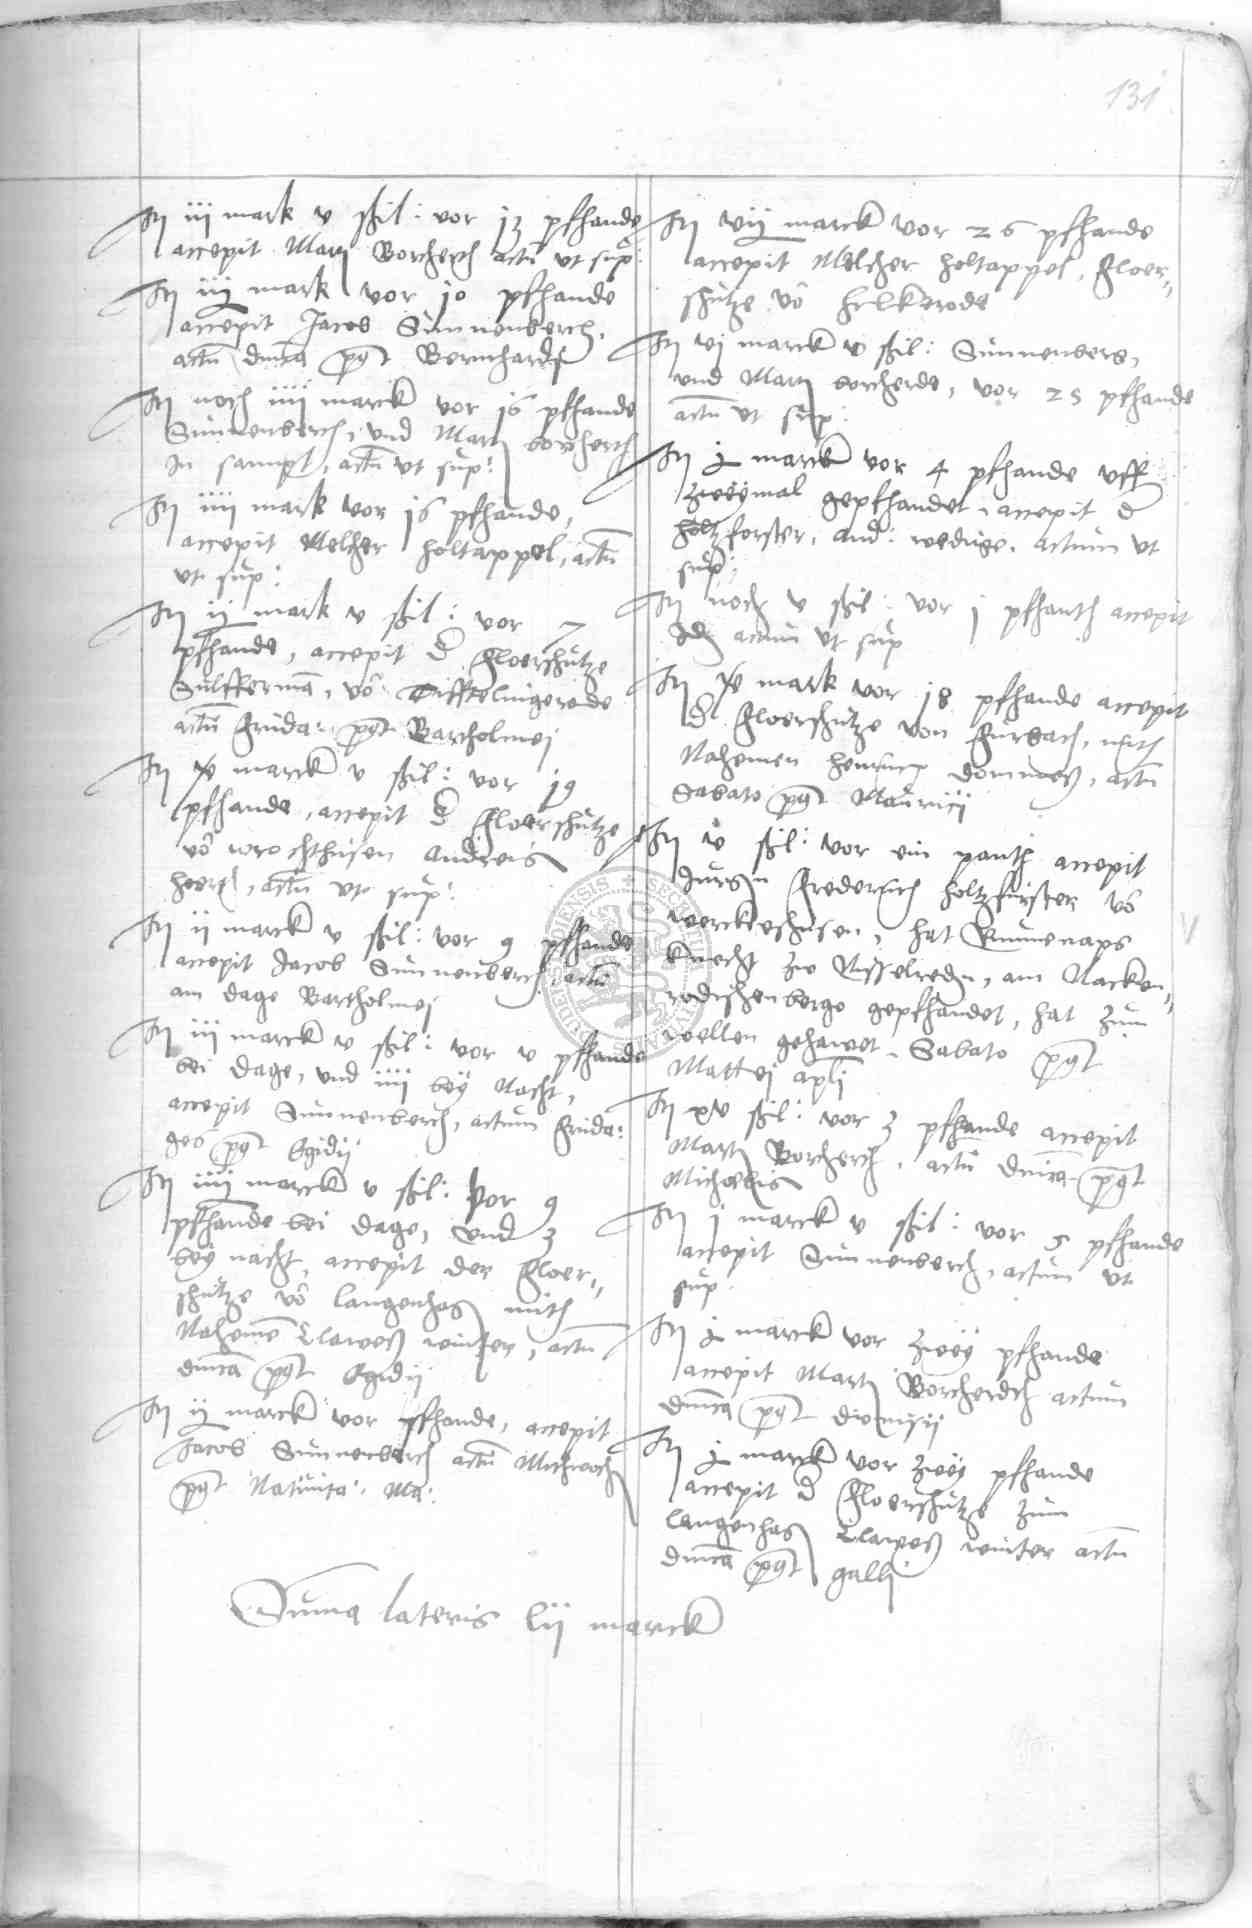 131
It iii mark v ßil: vor 13 pfhande
accepit Marti Borcherch actu ut sup:
It iij mark vor 10 pfhande
accepit Jacob Sunnenberch,
actu dnica pqt Bernhardi
It noch iiii marck vor 16 pfhande
Sunnenberch, und Marti borcherch
in sampt, actu ut sup:
It iiii mark vor 16 pfhande,
accepit Melcher holtappel, actu
ut sup:
It ij mark v ßil: vor 7
pfhande, accepit d Floerschutze
Sulfferma, vo Tifftelingerode
actu Frida: pqt Bartholmej
It marck v ßil: vor 19
pfhande, accepit d Floerschutze
vo worochthusen Andreis
actu ut sup:
It ii marck v ßil: vor 9 pfhande
accepit Jacob Sunnenberch, actu
am dage Bartholmej
It iii marck v ßil: vor v pfhande
bei dage, und iiii bey Nacht,
accepit Sunnenberch, actum Frida:
ges pqt Egidij
It iiij marck v ßil: vor 9
pfhande bei dage, und 3
bey nacht, accepit der Floer=
schutze vo Langenhag mith
Nahemen Claweß winter, actu
dnica pqt Egidij
It ij marck vor pfhande, accepit
Jacob Sunnenberch actu Mitwoch
pqt Nativita: Ma:
It vij marck vor 26 pfhande
accepit Melcher holtappel, Floer=
schutze vo hilkerode
It vi marck v ßil: Sunnenberg,
und Marti borcherde, vor 25 pfhande
actu ut sup:
It j marck vor 4 pfhande uff
zweymal gepfhandet, accepit d
holtzforster, And: wedige. actum ut
sup:
It noch v ßil: vor j pfhanth accepit
Ide actum ut sup
It mark vor 18 pfhande accepit
d Floerschutze von Furbach, mith
Nahemen domneß, actu
Sabato pqt Mauricij
It v ßil: vor ein panth accepit
Jurgen Frederich holtzfurster vo
werckeshusen, hat
knecht zw Nisselreden, am Nacken=
rodischenberge gepfhandet, hat zum
wellen gehawet. Sabato pqt
Mattei apli
It xv ßil: vor 3 pfhande accepit
Marti Borcherch, actu dnica pqt
Michaelis
It j marck v ßil: vor 5 pfhande
accepit Sunnenberch, actum ut
sup:
It j marck vor zwey pfhande
accepit Marti Borcherdch actum
dnica pqt dionisij
It j marck vor zwey pfhande
accepit d Floerschutze zum
Langenhag Claweß winter actu
dnica pqt galli
Suma lateris lij marck